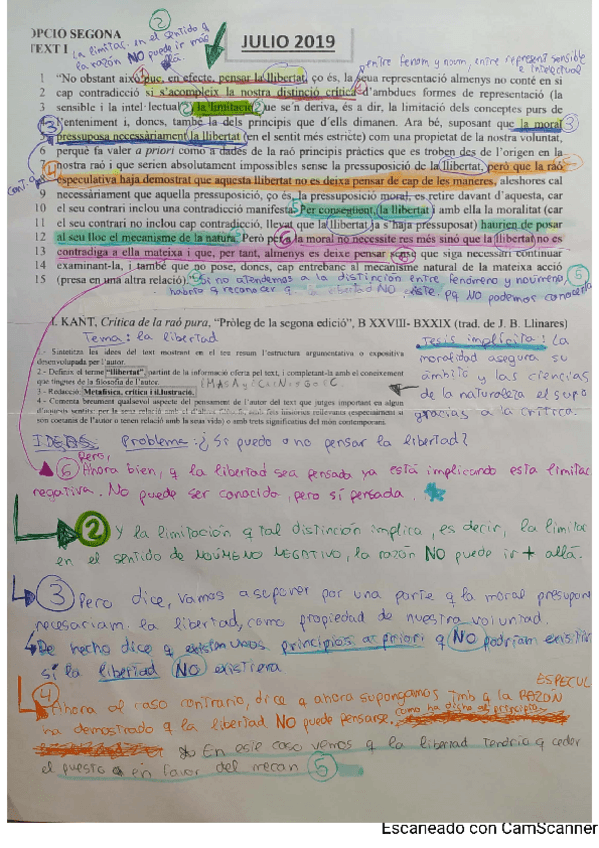 OPCIÓ SEGONA
TEXT I
JULIO 2019
②
La limitac. en el sentido q
la razón NO puede ir más
allá.
entre fenom y noum, entre represent sensible
e intelectual
1 "No obstant això que, en efecte, pensar la llibertat, ço és, la seua representació almenys no conté en si
2 cap contradicció si s'acompleix la nostra distinció crítica d'ambdues formes de representació (la
3 sensible i la intel·lectual) i la limitació que se'n deriva, és a dir, la limitació dels conceptes purs de
4 l'enteniment i, doncs, també la dels principis que d'ells dimanen. Ara bé, suposant que la moral
5 pressuposa necessàriament la llibertat (en el sentit més estricte) com una propietat de la nostra voluntat,
6 perquè fa valer a priori com a dades de la raó principis pràctics que es troben des de l'origen en la
7 nostra raó i que serien absolutament impossibles sense la pressuposició de la llibertat, però que la raó
8 especulativa haja demostrat que aquesta llibertat no es deixa pensar de cap de les maneres, aleshores cal
9 necessàriament que aquella pressuposició, ço és, la pressuposició moral, es retire davant d'aquesta, car
10 el seu contrari inclou una contradicció manifesta. Per consegüent, la llibertat i amb ella la moralitat (car
11 el seu contrari no inclou cap contradicció, llevat que la llibertat s'haja pressuposat) haurien de posar
12 al seu lloc el mecanisme de la natura. Però per a la moral no necessite res més sinó que la llibertat no es
13 contradiga a ella mateixa i que, per tant, almenys es deixe pensar sense que siga necessari continuar
14 examinant-la, i també que no pose, doncs, cap entrebanc al mecanisme natural de la mateixa acció
15 (presa en una altra relació).
Si no atendemos a la distinción entre fenómeno y noúmeno, ⑤
habría q reconocer q la libertad NO existe. pq NO podemos conocerla
I. KANT, Crítica de la raó pura, "Pròleg de la segona edició", B XXVIII- BXXIX (trad. de J. B. Llinares)
Tema: la libertad
1.- Sintetitza les idees del text mostrant en el teu resum l'estructura argumentativa o expositiva
desenvolupada per l'autor.
2.- Defineix el terme "llibertat", partint de la informació oferta pel text, i completant-la amb el coneixement
que tingues de la filosofia de l'autor.
3.- Redacció: Metafísica, crítica i il.lustració.
4.- Comenta breument qualsevol aspecte del pensament de l'autor del text que jutges important en algun
d'aquests sentits: per la seua relació amb
són coetanis de l'autor o tenen relació amb la seua vida) o amb trets significatius del món contemporani.
Tesis implícita: La
moralidad asegura su
ámbito y las ciencias
de la naturaleza el suyo
gracias a la crítica.
IDEAS: Problema: ¿Si puedo o no pensar la libertad?
Pero,
⑥ Ahora bien, q la libertad sea pensada ya está implicando esta limitac
negativa. No puede ser conocida, pero sí pensada.
② Y la limitación q tal distinción implica, es decir, la limitac
en el sentido de NOÚMENO NEGATIVO, la razón NO puede ir + allá.
③ Pero dice, vamos a suponer por una parte q la moral presupone
necesariam. la libertad, como propiedad de nuestra voluntad.
De hecho dice q existan unos principios a priori q NO podrían existir
si la libertad NO existiera
ESPECUL
④ Ahora al caso contrario, dice q ahora supongamos tmb q la RAZÓN
ha demostrado q la libertad NO puede pensarse. como ha dicho al principio,
En este caso vemos q la libertad tendría q ceder
el puesto en favor del mecan ⑤
Escaneado con CamScanner